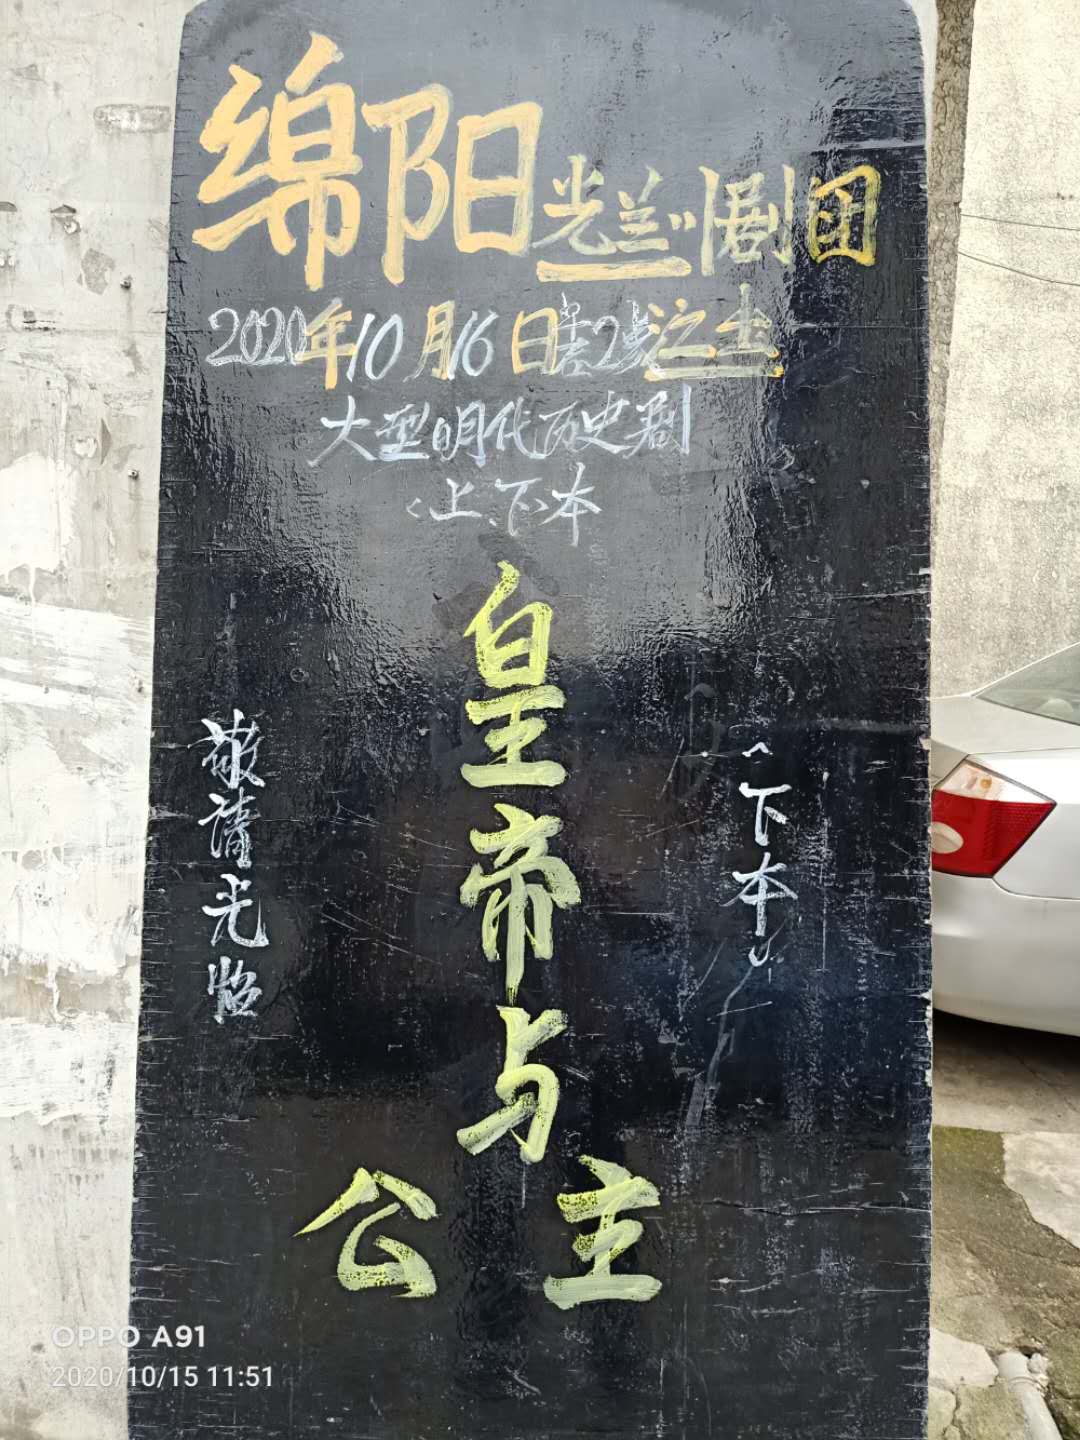 绵阳光兰川剧团
2020年10月16日午后2点演出
大型明代历史剧
<上、下>本
皇帝与
公主
<下本>
敬请光临
OPPO A91
2020/10/15 11:51